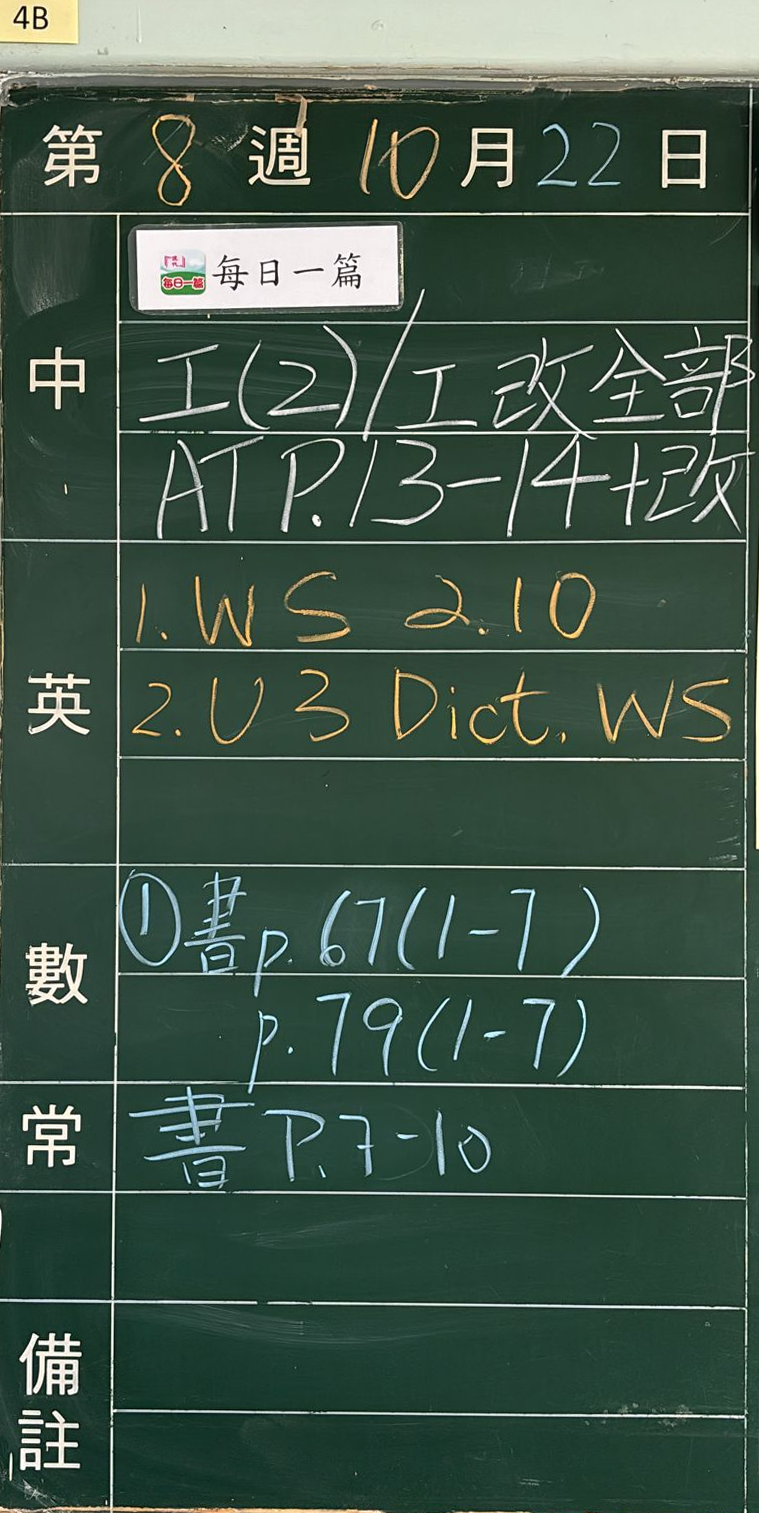 4B
第 8 週 10 月 22 日
中
每日一篇 每日一篇
工(2)/工改全部
AT P.13-14+改
英
1. WS 2.10
2. U3 Dict. WS
數
①書p.67(1-7)
p.79(1-7)
常
書 P.7-10
備註